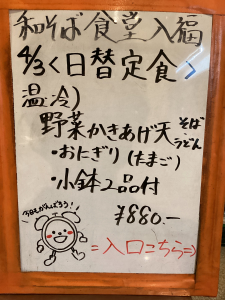 和そば食堂入福
4/3〈日替定食〉
温冷)
野菜かきあげ天そば
うどん
・おにぎり(たまご)
・小鉢2品付
¥880.-
今日もがんばろう!
=入口こちら⇒